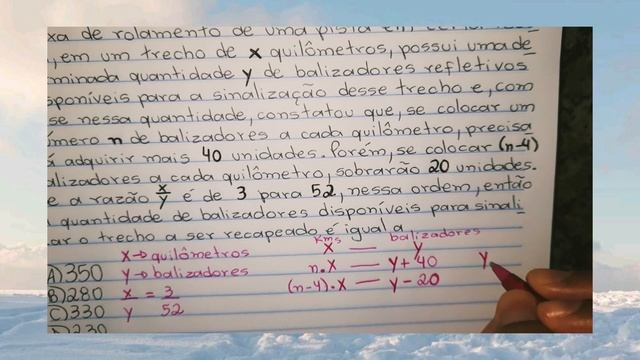 xa de rolamento de uma pista em
, em um trecho de x quilômetros, possui uma de
minada quantidade y de balizadores refletivos
sponíveis para a sinalização desse trecho e, com
se nessa quantidade, constatou que, se colocar um
mero n de balizadores a cada quilômetro, precisa
á adquirir mais 40 unidades. Porém, se colocar (n-4)
alizadores a cada quilômetro, sobrarão 20 unidades.
e a razão x/y é de 3 para 52, nessa ordem, então
quantidade de balizadores disponíveis para sinali
ar o trecho a ser recapeado é igual a
Kms balizadores
x → quilômetros x — y
A) 350 y → balizadores n.x — y + 40 y
B) 280 x/y = 3/52 (n-4).x — y - 20
C) 330
D) 230